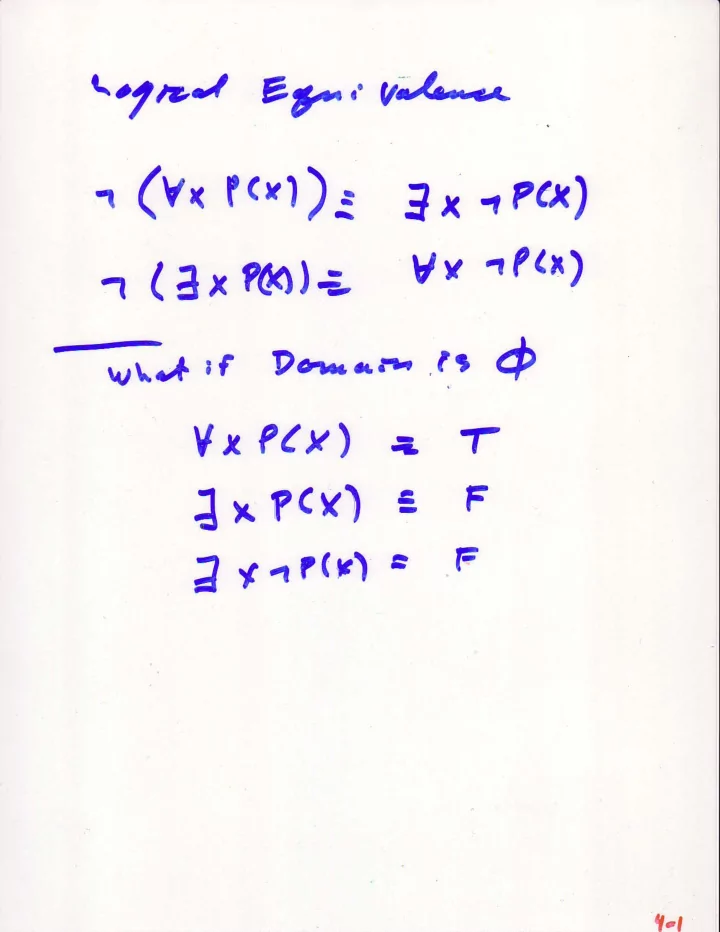 Logical Equivalence
¬ (∀x P(x)) ≡ ∃x ¬P(x)
¬ (∃x P(x)) ≡ ∀x ¬P(x)
What if Domain is ϕ
∀x P(x) ≡ T
∃x P(x) ≡ F
∃x ¬P(x) = F
4-1